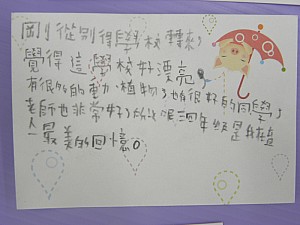 剛從別得學校轉來,
覺得這學校好漂亮,
有很多的動、植物,也有很好的同學,
老師也非常好,所以呢三年級是我這
人最美的回憶。